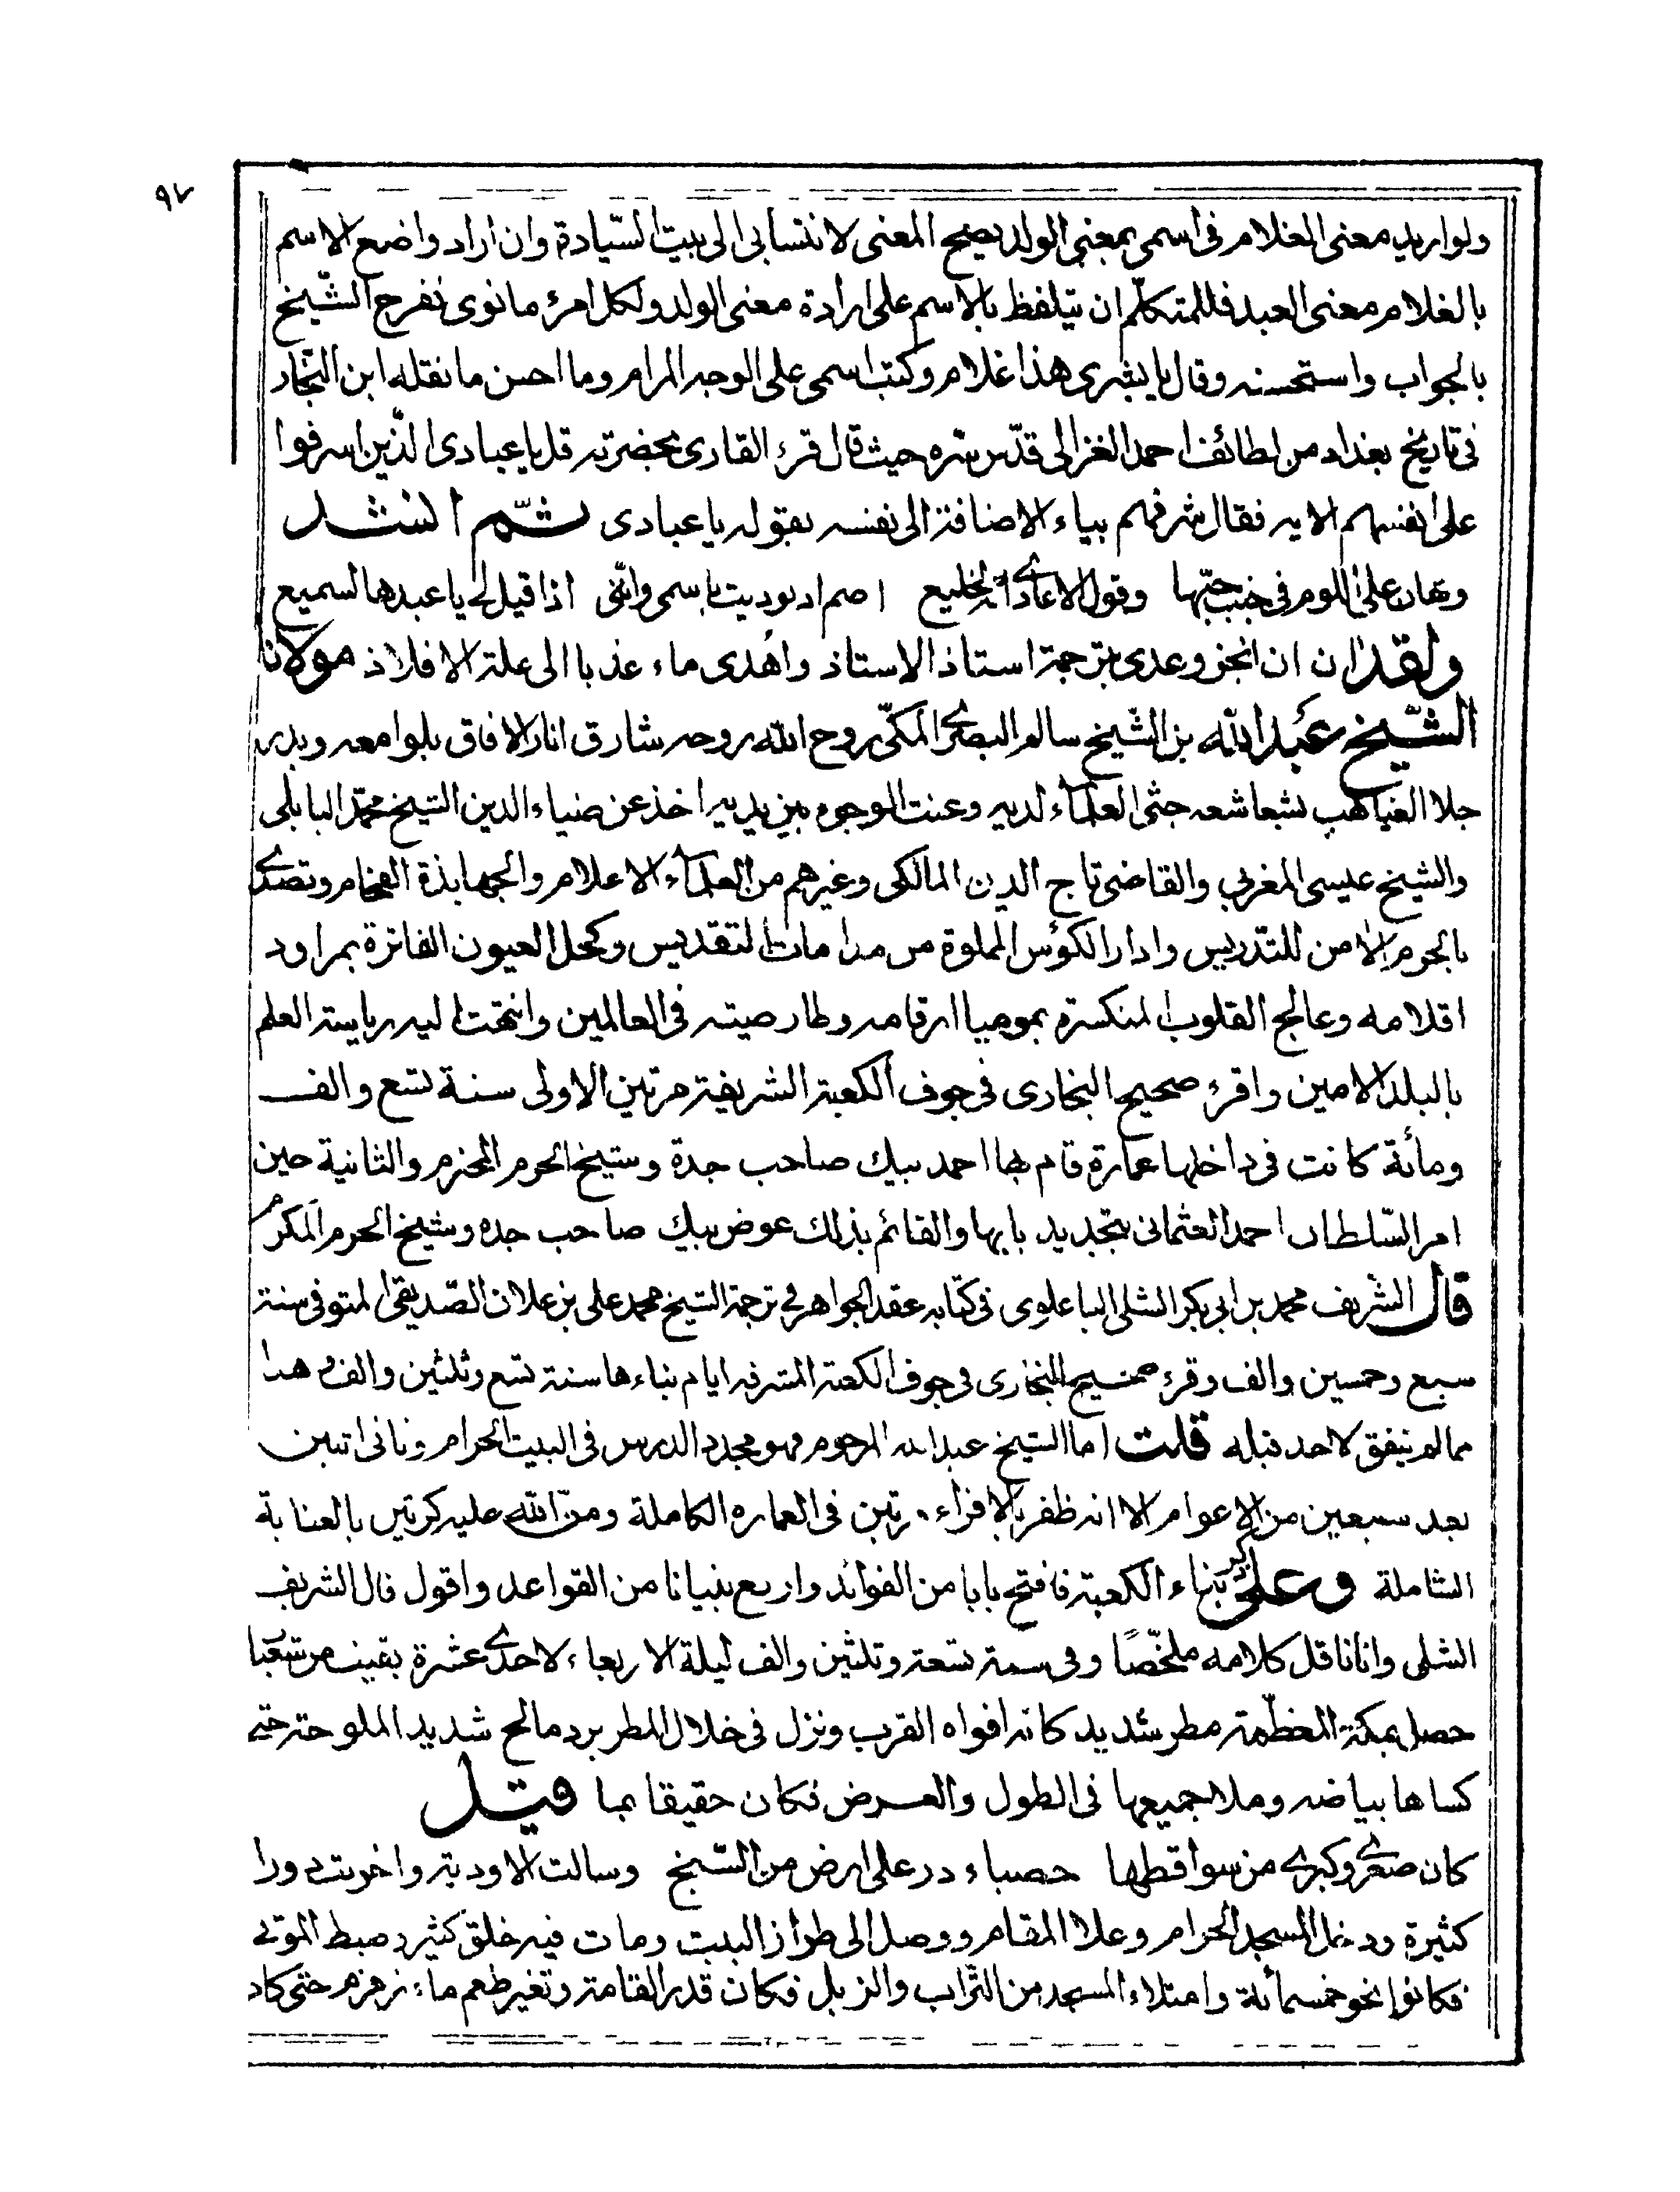 ٩٧
ولو اريد معنى الغلام فى اسمى بمعنى الولد يصح المعنى لانتسابى الى بيت السّيادة وان اراد واضع الاسم
بالغلام معنى العبد فللمتكلّم ان يتلفظ بالاسم على ارادة معنى الولد ولكل امرئ ما نوى ففرح الشّيخ
بالجواب واستحسنه وقال يا بشرى هذا غلام وكتب اسمى على الوجه المرام وما احسن ما نقله ابن النّجار
فى تاريخ بغداد من لطائف احمد الغزالى قدّس سّره حيث قال قرء القارى بحضرته قل يا عبادى الّذين اسرفوا
على انفسهم الايه فقال شرفهم بياء الاضافة الى نفسه بقوله يا عبادى ثمّ انشد
وهان على اللوم فى جنب حبّها وقول الاعادے انّه لخليع اصم اذ نوديت باسمى وانّنى اذا قيل لى يا عبدها لسميع
ولقد ان ان انجز وعدى بترجمة استاذ الاستاذ واهدى ماء عذبا الى علة الافلاذ مولانا
الشّيخ عبد الله بن الشّيخ سالم البصرى المكّى روح الله روحه شارق انار الافاق بلوامعه وبدر
جلا الغياهب بشعاشعه جثى العلماء لديه وعنت الوجوه بين يديه اخذ عن ضياء الدين الشيخ محمّد البابلى
والشيخ عيسى المغربي والقاضى تاج الدين المالكى وغيرهم من العلماء الاعلام والجهابذة الفخام وتصدے
بالحرم الامن للتّدريس وادار الكؤس المملوة من مدامات التقديس وكحل العيون الفاترة بمراود
اقلامه وعالج القلوب المنكسرة بموميا ارقامه وطار صيته فى العالمين وانتهت اليه رياسة العلم
بالبلد الامين واقرء صحيح البخارى فى جوف الكعبة الشريفة مرتين الاولى سنة تسع والف
ومائة كانت فى داخلها عمارة قام بها احمد بيك صاحب جدة وشيخ الحرم المحترم والثانية حين
امر السّلطان احمد العثمانى بتجديد بابها والقائم بذلك عوض بيك صاحب جده وشيخ الحرم المكرم
قال الشريف محمد بن ابى بكر الشلى الباعلوى فى كتابه عقد الجواهر فى ترجمة الشيخ محمد على بن علان الصّديقى المتوفى سنة
سبع وخمسين والف وقرء صحيح البخارى فى جوف الكعبة المشرفه ايام بناءها سنة تسع وثلثين والف وهذا
مما لم يتفق لاحد قبله قلت اما الشيخ عبد الله المرحوم فهو مجدد الدرس فى البيت الحرام وثانى اثنين
بعد سبعين من الاعوام الا انه ظفر بالاقراء مرتين فى العماره الكاملة ومنّ الله عليه كرتين بالعناية
الشاملة وعلى ذكر بناء الكعبة فافتح بابا من الفوائد وارفع بنيانا من القواعد واقول قال الشريف
الشلى وانا ناقل كلامه ملخّصًا وفى سنة تسعة وثلثين والف ليلة الاربعاء لاحدے عشرة بقيت من شعبا
حصل بمكة المعظّمة مطر شديد كانه افواه القرب ونزل فى خلال المطر برد مالح شديد الملوحة حتى
كساها بياضه وملا جميعها فى الطول والعرض فكان حقيقا بما قيل
كان صغرے وكبرے من سواقطها حصباء در على ارض من السّبخ وسالت الاودية واخربت دورا
كثيرة ودخل المسجد الحرام وعلا المقام ووصل الى طراز البيت ومات فيه خلق كثير وضبط الموتے
فكانوا نحو خمسمائة وامتلاء المسجد من التّراب والزبل فكان قدر القامة وتغير طعم ماء زمزم حتى كاد